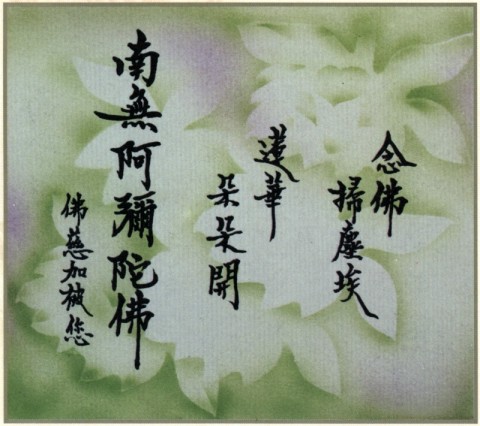 念佛
掃塵埃
蓮華
朵朵開
南無阿彌陀佛
佛慈加被您